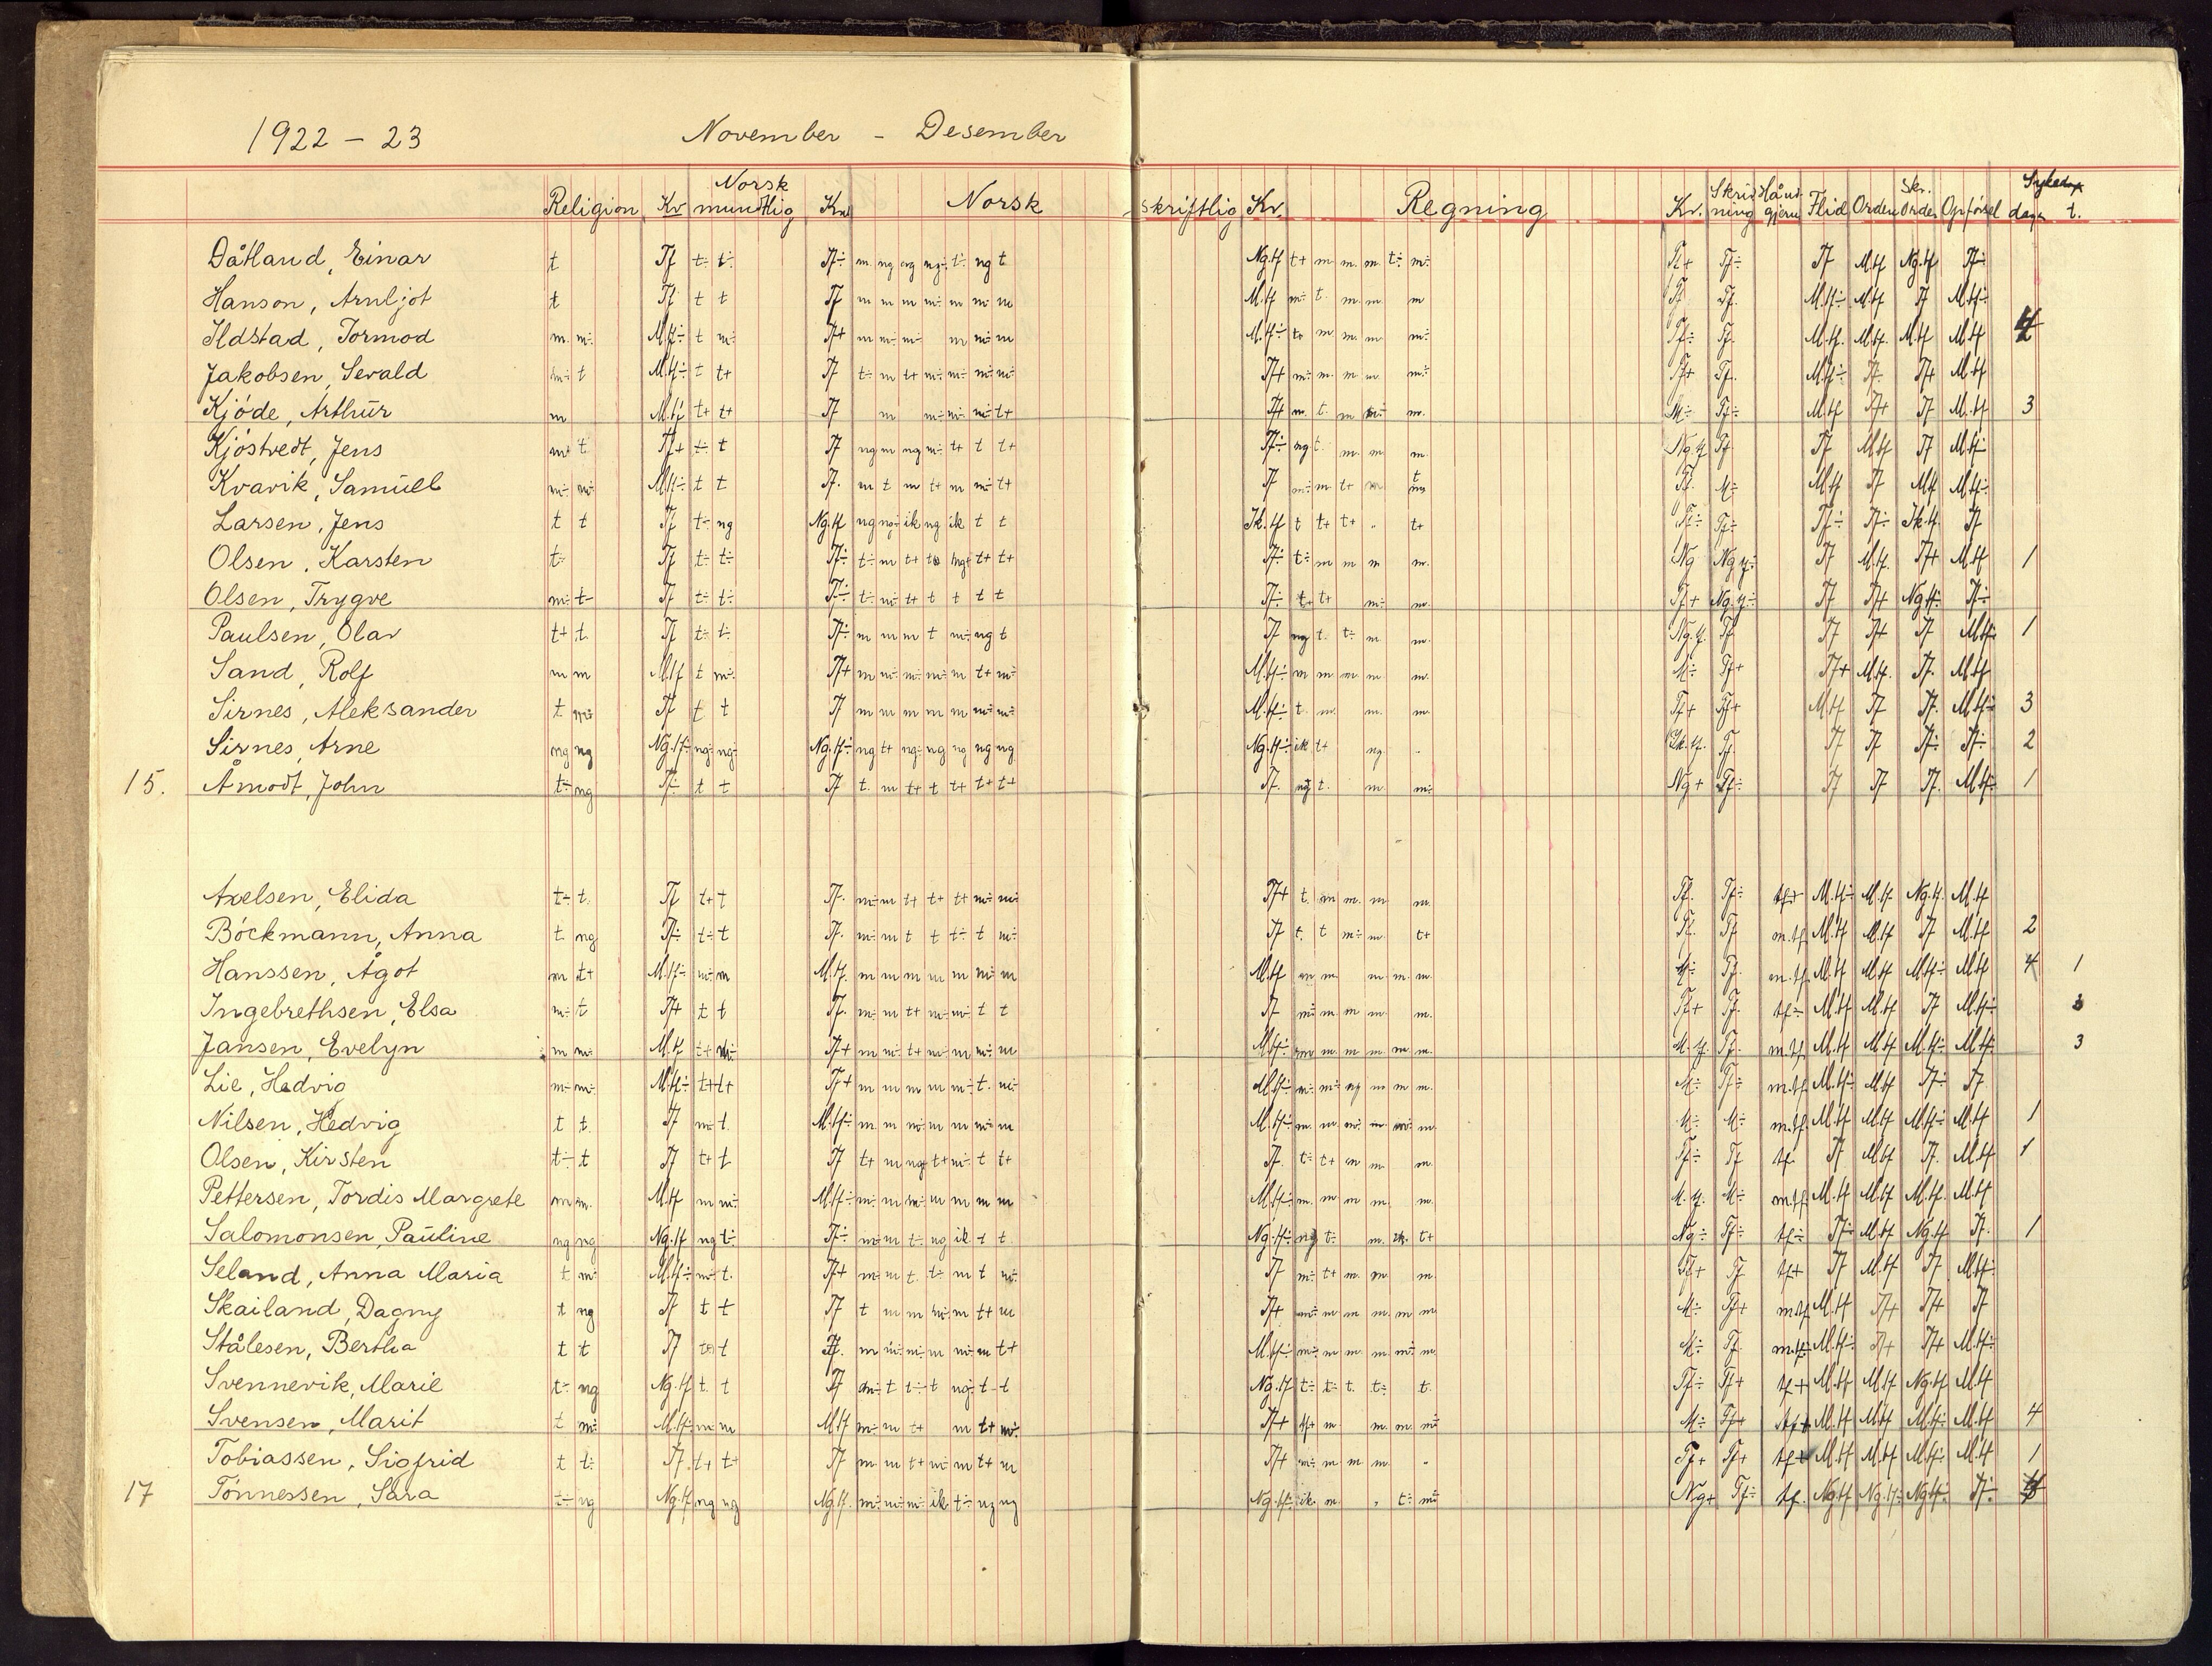 1922 - 23 November - Desember
Religion Kv Norsk mundtlig Kv Norsk skriftlig Kv. Regning Kv. Skrivning Håndgjern Flid Orden Skr. Orden Opførsel dage t.
Dåtland, Einar t Tf t÷ t÷ Tf÷ m ng ng ng÷ t÷ ng t Ng.tf t+ m m. m. t÷ m÷ Tf+ Tf÷ Tf M.tf Ng.tf Tf÷
Hanson, Arnljot t Tf t t Tf m m m m÷ m m÷ m M.tf m÷ t. m. m. m Tf Tf. M.tf÷ M.tf Tf M.tf÷
Ildstad, Tormod m. m÷ M.tf÷ t m÷ Tf+ m m÷ m÷ m m÷ m M.tf÷ m. m. m m÷ Tf÷ Tf. M.tf. M.tf. M.tf M.tf
Jakobsen, Sevald m÷ t M.tf÷ t t+ Tf t÷ m t+ m÷ m÷ m÷ m÷ Tf+ m÷ m. m m. m÷ Tf+ Tf. M.tf÷ Tf. Tf+ M.tf
Kjøde, Arthur m M.tf t+ t+ Tf m m÷ m÷ m÷ t+ Tf+ m. t. m m. M÷ Tf÷ M.tf Tf+ Tf M.tf 3
Kjøstvedt, Jens m÷ t Tf+ t÷ t Tf ng m ng m÷ t+ t t+ Tf÷ ng t. m. m m. Ng.tf Tf Tf M.tf Tf M.tf÷
Kvavik, Samuel m÷ m÷ M.tf÷ t t Tf. m t m t+ m m÷ t+ Tf m÷ m t+ m Tf. M÷ M.tf Tf M.tf M.tf÷
Larsen, Jens t t Tf t÷ ng Ng.tf ng ng÷ ik ng ik t t Ik.tf t t+ t+ t+ Tf÷ Tf÷ Tf÷ Tf÷ Ik.tf. Tf
Olsen, Karsten t÷ Tf t÷ t÷ Tf÷ t÷ m t+ ng+ t+ t+ Tf÷ t÷ m m m m. Ng Ng.tf÷ Tf M.tf. Tf+ M.tf 1
Olsen, Trygve m÷ t÷ Tf t÷ t÷ Tf÷ t÷ m÷ t+ t t t t Tf÷ t+ t+ m÷ m. Tf+ Ng.tf÷ Tf Tf+ Ng.tf÷ Tf÷
Paulsen, Olav t+ t. Tf t÷ t÷ Tf÷ m m m t m÷ ng t Tf ng t. t÷ m. m. Ng.tf. Tf Tf Tf+ Tf M.tf÷ 1
Sand, Rolf m m M.tf t m÷ Tf+ m m÷ m÷ m÷ m t+ m÷ M.tf÷ m m m m. m. M÷ Tf+ Tf+ M.tf. Tf. M.tf
Sirnes, Aleksander t m÷ Tf t t Tf m m m m m m÷ m÷ M.tf÷ t. m. m. m. Tf+ Tf+ M.tf Tf Tf. M.tf÷ 3
Sirnes, Arne ng ng Ng.tf÷ ng÷ ng÷ Ng.tf÷ ng t+ ng÷ ng ng ng ng Ng.tf÷ ik t+ ng Ik.tf. Tf Tf Tf Tf÷ Tf÷ 2
15. Åmodt, John t÷ ng Tf÷ t t Tf t. m t+ t t+ t+ t+ Tf. ng t. m. m÷ Ng+ Tf÷ Tf Tf Tf. M.tf÷ 1
Axelsen, Elida t÷ t. Tf t+ t Tf. m÷ m t+ t+ t+ m÷ m÷ Tf+ t. m m. m. m. Tf. Tf÷ tf+ M.tf÷ M.tf Ng.tf. M.tf
Bøckmann, Anna t ng Tf÷ t÷ t Tf. m÷ m t t t÷ t m÷ Tf t. t m÷ m. t+ Tf. Tf m.tf. M.tf M.tf Tf M.tf 2
Hanssen, Ågot m t+ M.tf÷ m÷ m M.tf. m m m m m m÷ m M.tf m m. m. m. m. M÷ Tf. m.tf. M.tf M.tf M.tf÷ M.tf 4 1
Ingebrethsen, Elsa m÷ t Tf+ t t Tf. m÷ m t+ m÷ m÷ t t Tf m÷ m. m m. m. Tf+ Tf. tf÷ M.tf M.tf Tf M.tf÷ 3
Jansen, Evelyn m m÷ M.tf t+ m÷ Tf+ m m÷ t+ m÷ m m÷ m M.tf÷ m m. m m. m m. M.tf. Tf. m.tf. M.tf M.tf M.tf÷ M.tf÷ 3
Lie, Hedvig m÷ m÷ M.tf÷ t+ t+ Tf+ m m m m m÷ t. m÷ M.tf÷ m÷ m÷ ng m m m. M÷ Tf÷ m.tf. M.tf÷ M.tf Tf÷ Tf
Nilsen, Hedvig t t. Tf m÷ t. M.tf÷ m. m m÷ m m m÷ m M.tf÷ m. m. m÷ m. m÷ m. M÷ M÷ m.tf. M.tf M.tf M.tf÷ M.tf 1
Olsen, Kirsten t÷ t Tf t+ t Tf t+ m ng t+ m÷ t t+ Tf. t÷ t+ m m. m. Tf÷ Tf tf Tf M.tf Tf. M.tf 1
Pettersen, Tordis Margrete m m. M.tf m m÷ M.tf÷ m÷ m m÷ m m m m M.tf÷ m. m m m. m. M.tf. M÷ m.tf. M.tf M.tf M.tf. M.tf
Salomonsen, Pauline ng ng Ng.tf ng t÷ Tf÷ m÷ m t÷ ng ik t t Ng.tf÷ ng t÷ m. ik. t+ Ng÷ Tf÷ tf÷ Tf÷ M.tf Ng.tf Tf. 1
Seland, Anna Maria t m÷ M.tf÷ m÷ t. Tf+ m÷ m t. t÷ m t m÷ Tf m÷ t+ m m. m. Tf+ Tf tf+ Tf M.tf Tf M.tf÷
Skailand, Dagny t ng Tf t t Tf t m m m÷ m t+ m Tf+ m÷ m m m. m m M÷ Tf+ m.tf M.tf Tf+ Tf+ Tf
Stålesen, Bertha t t Tf t Tf. m m÷ m÷ m m÷ m t+ M.tf÷ m÷ m m m. m÷ m. M÷ Tf. m.tf÷ M.tf÷ Tf+ Tf+ M.tf÷
Svennevik, Marie t÷ ng Ng.tf t. t Tf m÷ t t÷ t ng÷ t t Ng.tf t÷ t÷ t. t÷ t. Tf÷ Tf+ tf+ M.tf M.tf Ng.tf M.tf
Svensen, Marit t m÷ M.tf÷ m m M.tf m÷ m t+ m t+ m÷ Tf+ m m. m. m÷ M÷ Tf+ tf+ M.tf M.tf M.tf÷ M.tf 4
Tobiassen, Sigfrid t t÷ Tf. t+ t+ Tf m. m t+ m÷ m t+ m Tf+ m÷ m m m. Tf+ Tf+ tf+ M.tf M.tf M.tf÷ M.tf 1
17 Tønnessen, Sara t÷ ng Ng.tf ng ng Ng.tf. m÷ m÷ m÷ ik t÷ ng ng Ng.tf÷ ik. m. t÷ m÷ Ng+ Tf÷ tf. Ng.tf Ng.tf÷ Ng.tf÷ Tf÷